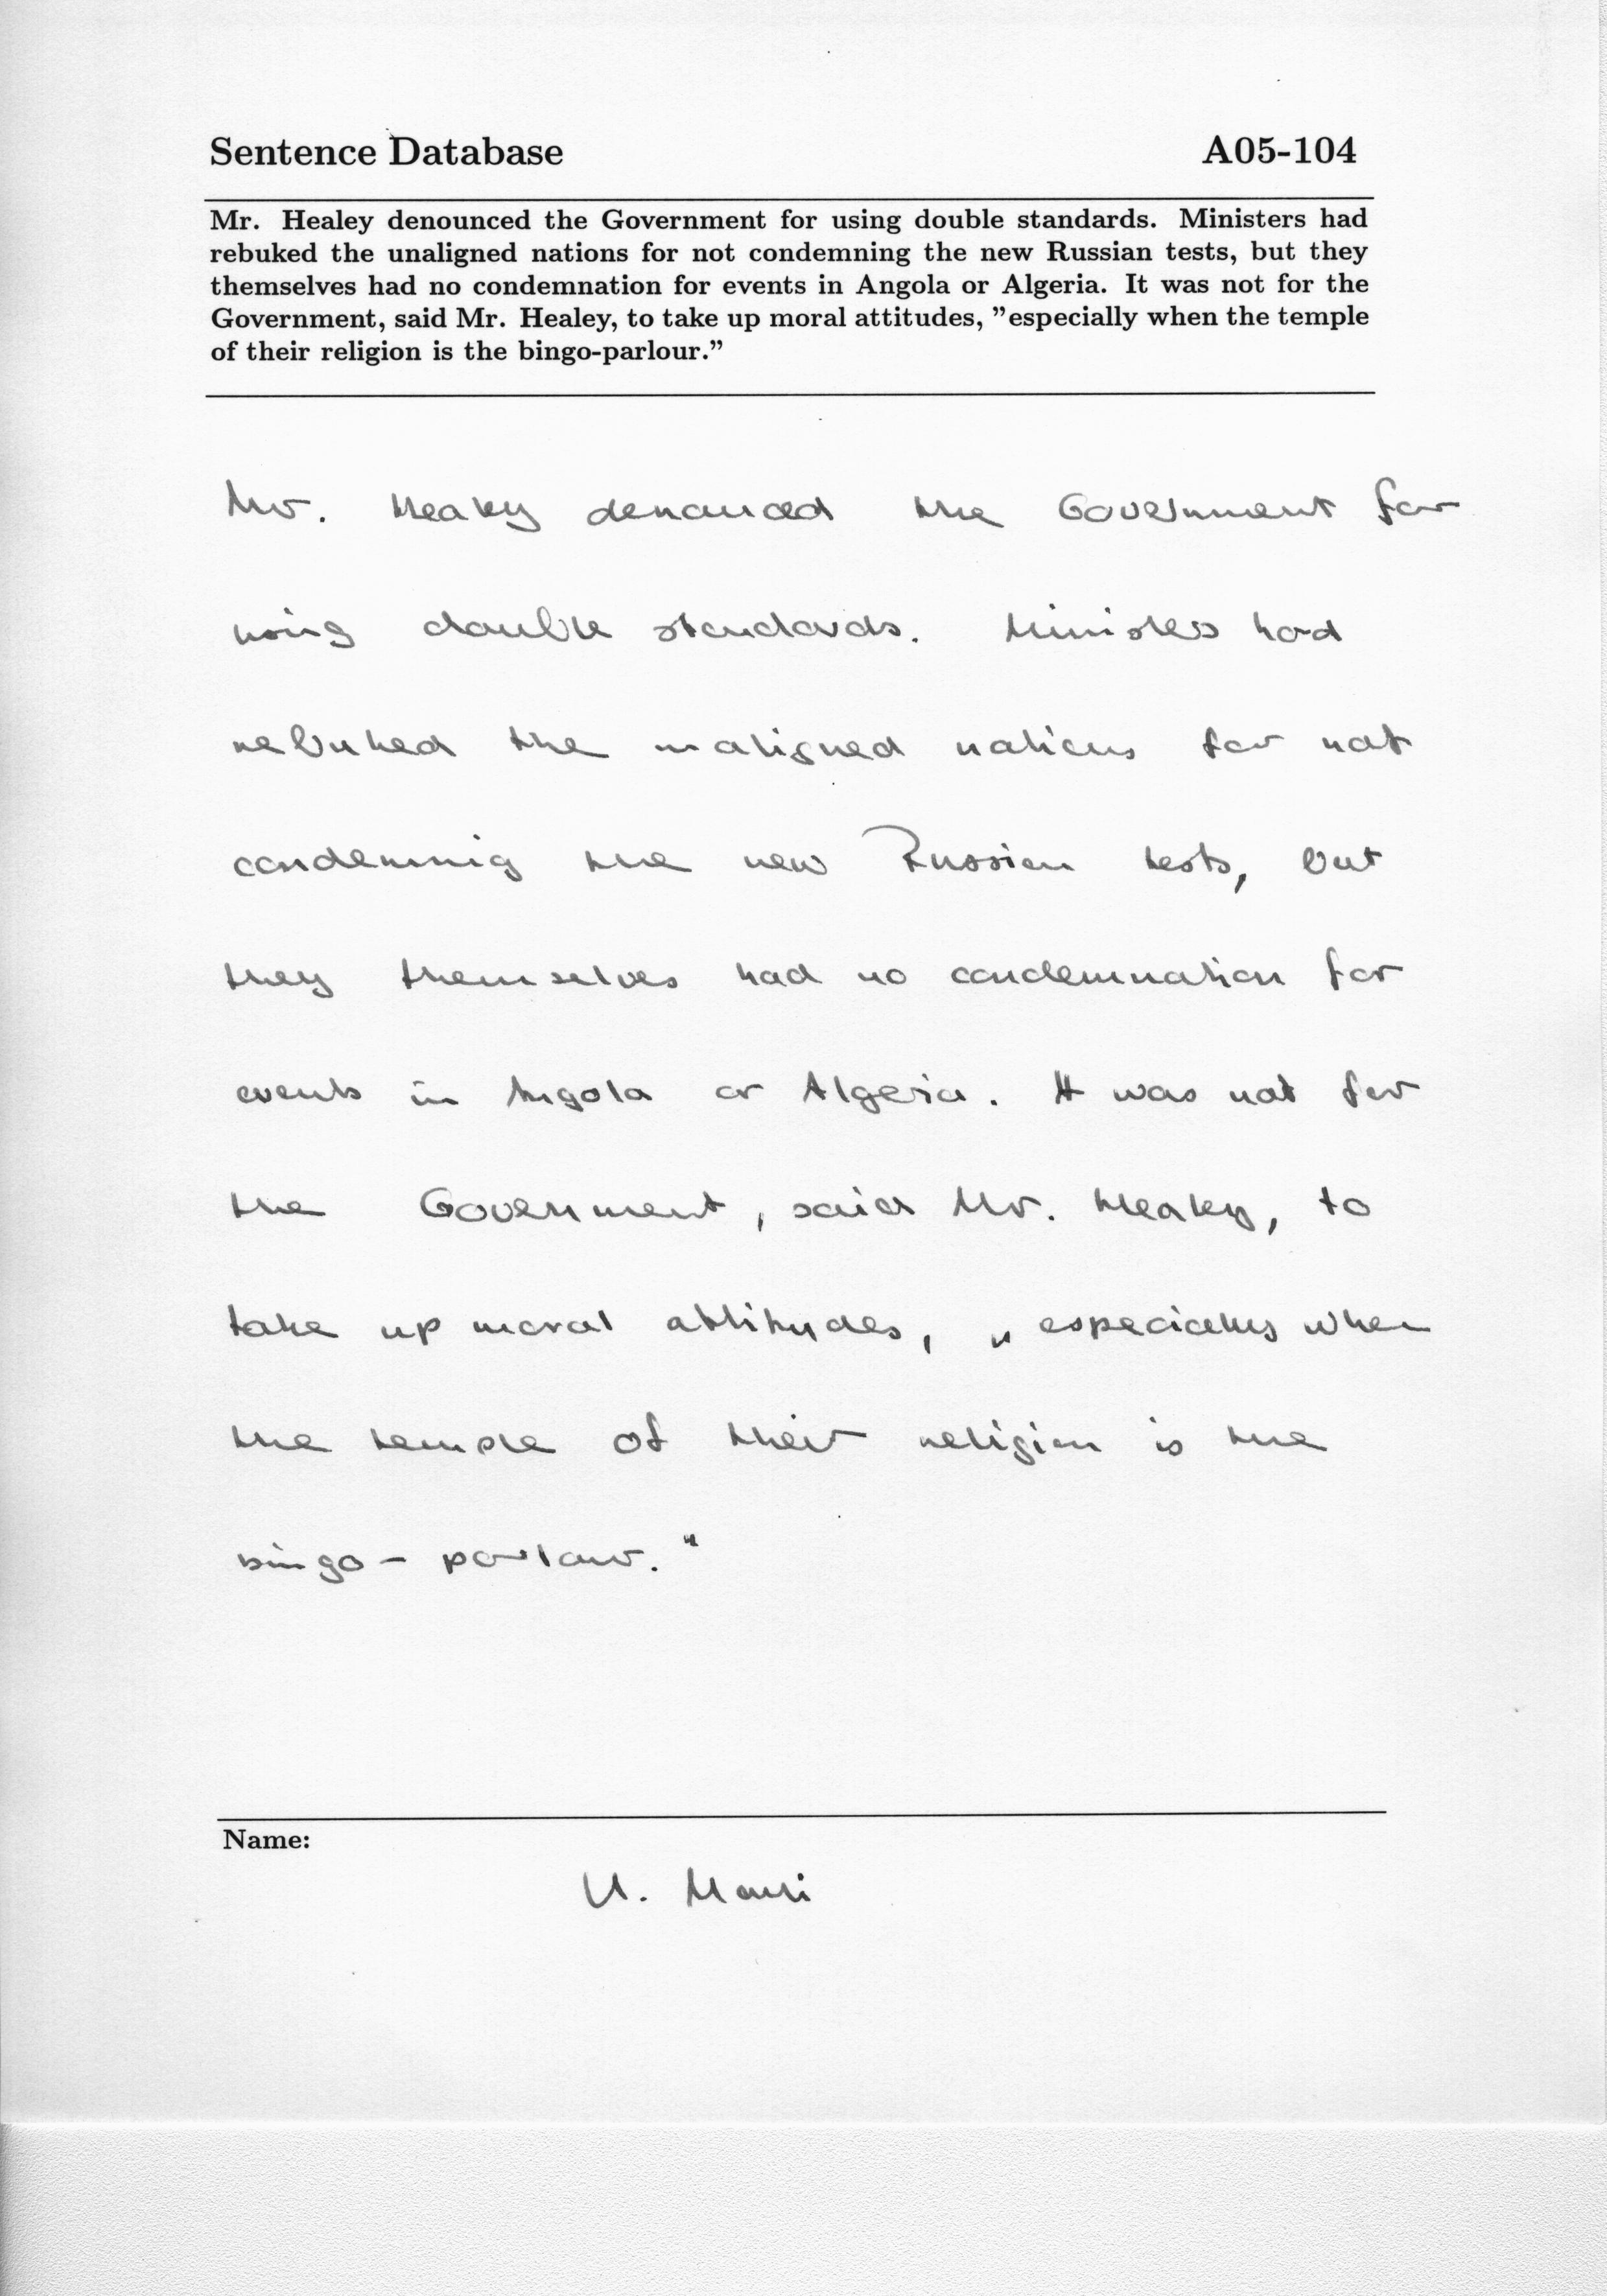 Sentence Database A05-104
Mr. Healey denounced the Government for using double standards. Ministers had
rebuked the unaligned nations for not condemning the new Russian tests, but they
themselves had no condemnation for events in Angola or Algeria. It was not for the
Government, said Mr. Healey, to take up moral attitudes, ”especially when the temple
of their religion is the bingo-parlour.”
Mr. Healey denounced the Government for
using double standards. Ministers had
rebuked the unaligned nations for not
condemning the new Russian tests, but
they themselves had no condemnation for
events in Angola or Algeria. It was not for
the Government, said Mr. Healey, to
take up moral attitudes, „especially when
the temple of their religion is the
bingo - parlour."
Name:
U.